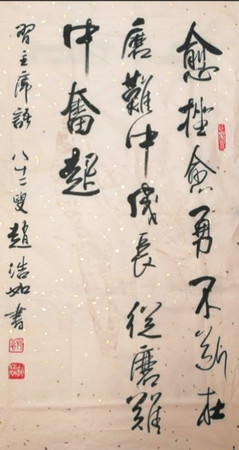 愈挫愈勇不斷在
磨難中成長從磨難
中奮起
習主席辞 八十二叟趙浩如書